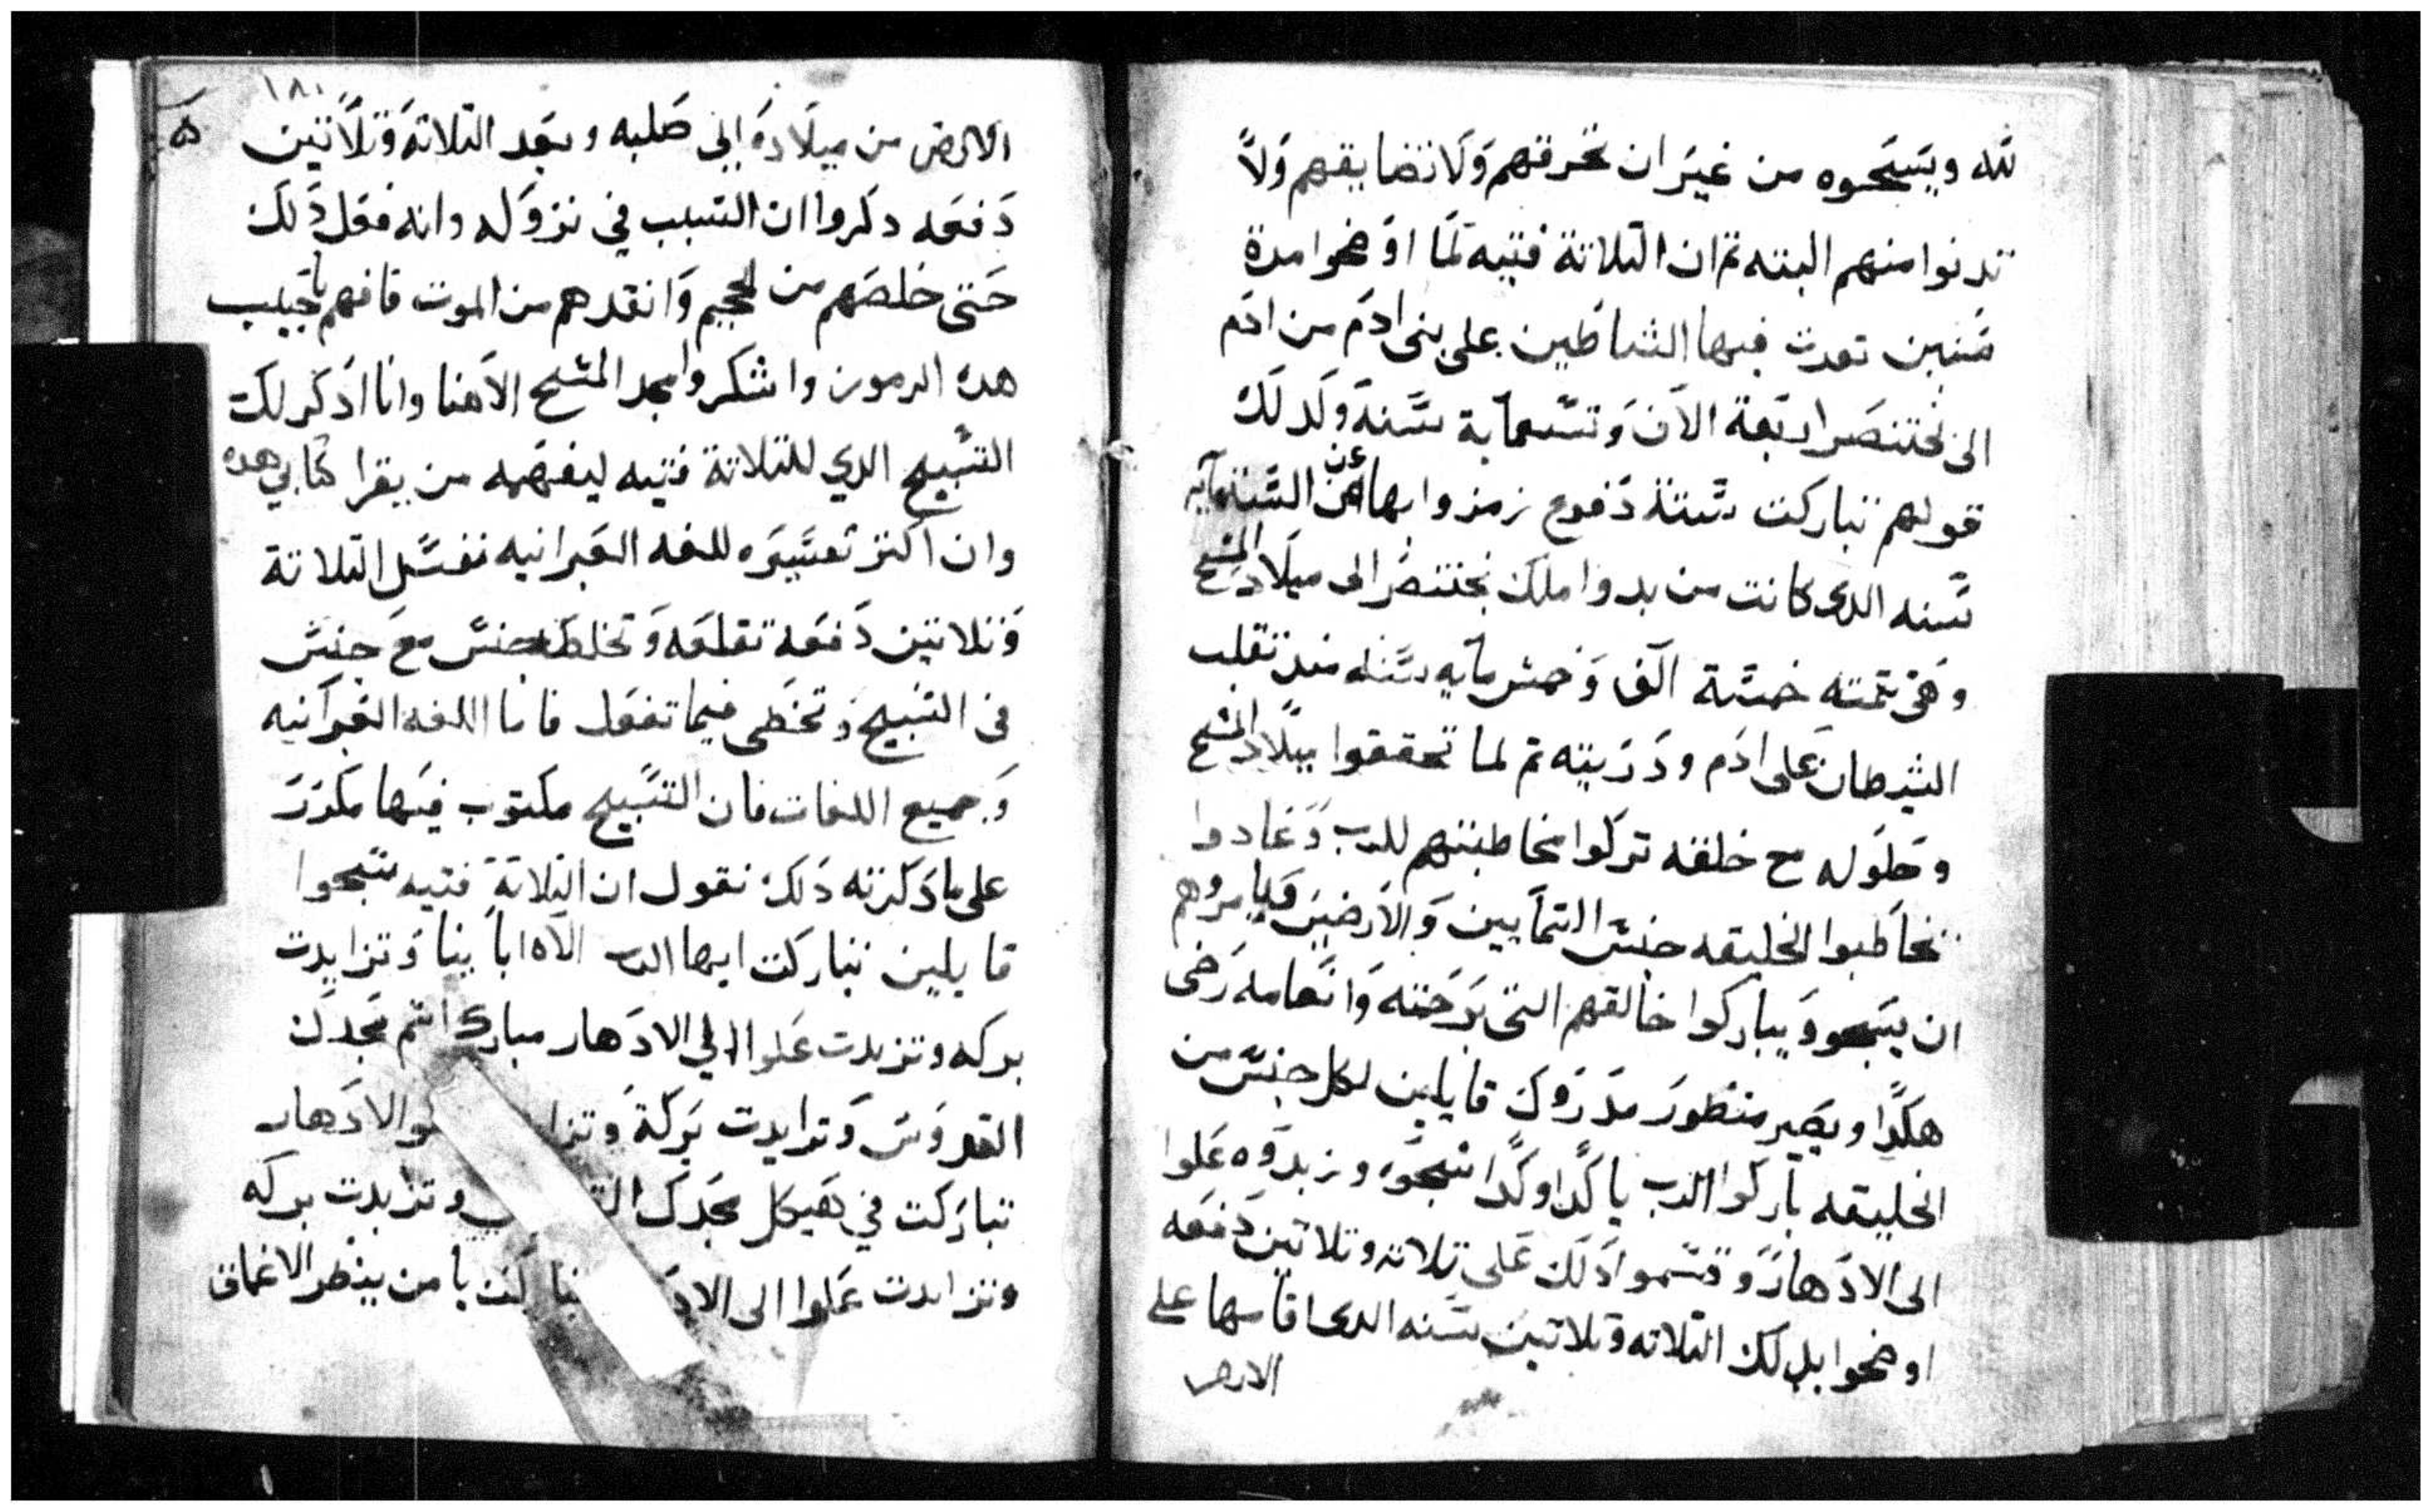 لله ويسبحوه من غير ان تحرقهم ولا تضايقهم ولا
تدنوا منهم البته تم ان التلاتة فتيه لما اوضحوا مدة
سنين تمرت فيها الشياطين على بني ادم من ادم
الى بختنصر اربعة الاف وتسعماية سنة ولدلك
قولهم تباركت ستة دفوع رمزوا بها عن الستماية
سنه الدي كانت من بدوا ملك بختنصر الى ميلاد المسيح
وهي تتمته خمسة الف وخمسماية سنه مند تقلب
الشيطان على ادم ودريته تم لما تحققوا ميلاد المسيح
وحلوله مع خلقه تركوا مخاطبتهم للرب وعادوا
يخاطبوا الخليقه جنس السمايين والارضيين ويامروهم
ان يسبحو ويباركوا خالقهم التي برحمته وانعامه رضى
هكدا ويصير منظور مدروك قايلين لكل جنس من
الخليقه باركوا الرب يا كدا وكدا سبحوه وزيدوه علوا
الى الادهار وقسموا دلك على تلاته وتلاتين دفعه
اوضحوا بدلك التلاته وتلاتين سنه الدي اقامها على
الارض
١٨٠
الارض من ميلاده الى صلبه وبعد التلاتة وتلاتين
دفعه دكروا ان السبب في نزوله وانه فعل دلك
حتى خلصهم من الجحيم وانقدهم من الموت فافهم يا حبيب
هده الرموز واشكر وامجد المسيح الاهنا وانا ادكر لك
التسبيح الدي للتلاتة فتيه ليفهمه من يقرا كتابي هده
وان اكتر تفسيره للغه العبرانيه تفسل التلاتة
وتلاتين دفعة تقلعه وتخلط جنس مع جنس
في التسبيح وتخطى فيما تفعل فاما اللغه العبرانيه
وجميع اللغات فان التسبيح مكتوب فيها مكرر
على ما دكرته دلك نقول ان التلاتة فتيه سبحوا
قايلين تباركت ايها الرب الاه اباينا وتزايدت
بركه وتزيدت علوا الي الادهار مبارك اسم مجدك
القدوس وتزايدت بركة وتزا لو الادهار
تباركت في هيكل مجدك وتزايدت بركه
وتزايدت علوا الى الاد تباركت يا من ينظر الاعماق